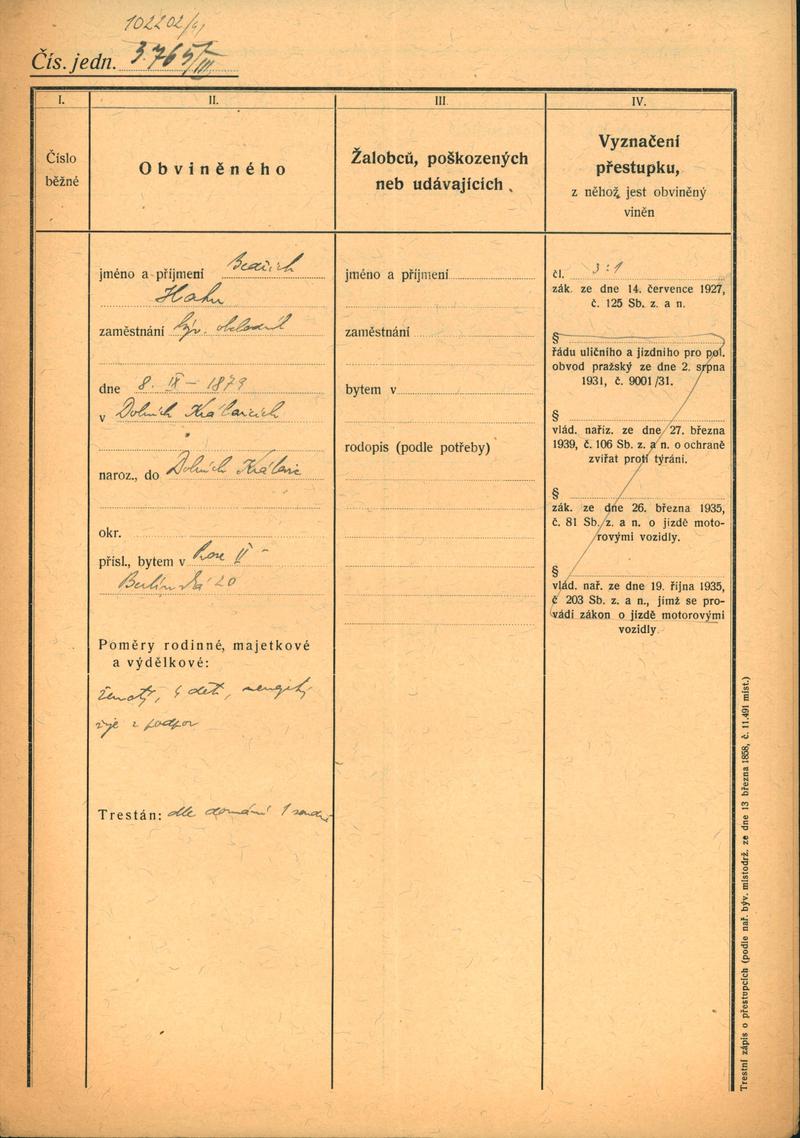 102202/41
Čís. jedn. 3765/III
I.
Číslo
běžné
II.
Obviněného
III.
Žalobců, poškozených
neb udávajících
IV.
Vyznačení
přestupku,
z něhož jest obviněný
viněn
jméno a příjmení Bedřich
Hahn
zaměstnání býv. obchodník
dne 8. IX - 1879
v Dolních Královicích
naroz., do Dolních Královic
okr.
přísl., bytem v Praze II -
Berlínská 20
Poměry rodinné, majetkové
a výdělkové:
ženatý, 4 děti, nemajetný
žije z podpor
Trestán: dle doznání 1 soudně
jméno a příjmení
zaměstnání
bytem v
rodopis (podle potřeby)
čl. 3:1
zák. ze dne 14. července 1927,
č. 125 Sb. z. a n.
§
řádu uličního a jízdního pro pol.
obvod pražský ze dne 2. srpna
1931, č. 9001/31.
§
vlád. naříz. ze dne 27. března
1939, č. 106 Sb. z. a n. o ochraně
zvířat proti týrání.
§
zák. ze dne 26. března 1935,
č. 81 Sb. z. a n. o jízdě moto-
rovými vozidly.
§
vlád. nař. ze dne 19. října 1935,
č 203 Sb. z. a n., jímž se pro-
vádí zákon o jízdě motorovými
vozidly.
Trestní zápis o přestupcích (podle nař. býv. místodrž. ze dne 13 března 1858, č. 11.491 míst.)